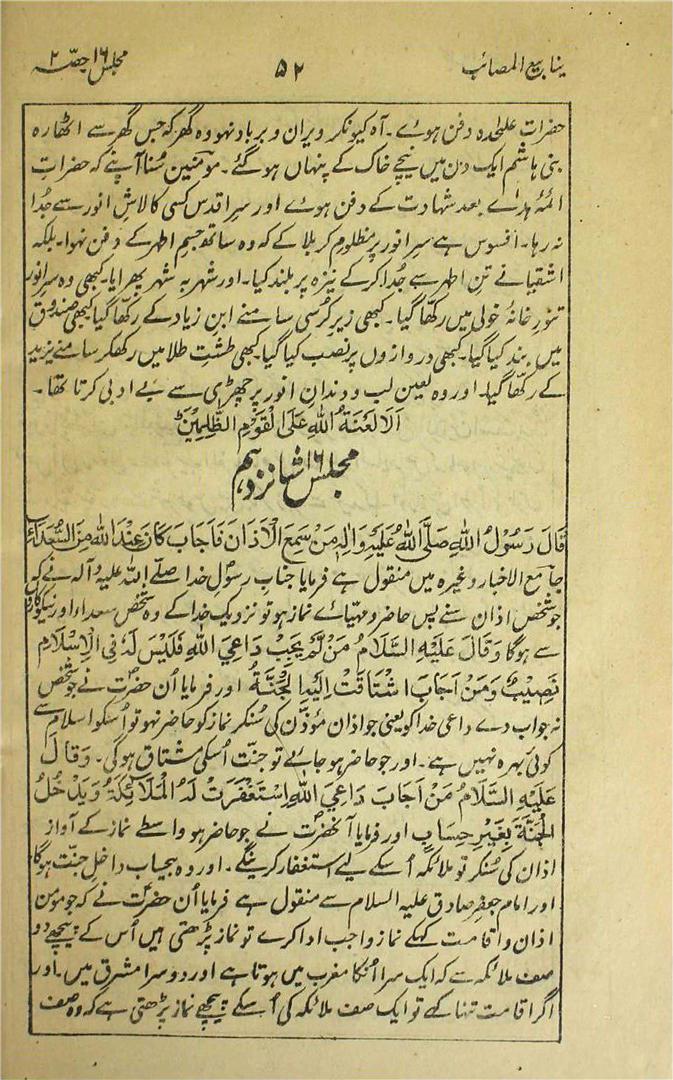 ینابیع المصائب ۵۲ مجلس ۱۶ حصّہ ۲
حضرات علٰحدہ دفن ہوئے۔ آہ کیونکر ویران و برباد نہو وہ گھر کہ جس گھر سے اٹھارہ
بنی ہاشم ایک دن میں نیچے خاک کے پنہاں ہو گئے۔ مومنین سُنا آپنے کہ حضرات
ائمۂ ہدےٰ بعد شہادت کے دفن ہوئے اور سر اقدس کسی کا لاش انور سے جُدا
نہ رہا۔ افسوس ہے سر انور پر مظلوم کربلا کے کہ وہ ساتھ جسم اطہر کے دفن نہوا۔ بلکہ
اشقیا نے تن اطہر سے جُدا کر کے نیزہ پر بلند کیا۔ اور شہر بہ شہر پھرایا۔ کبھی وہ سر انور
تنور خانۂ خولی میں رکھّا گیا۔ کبھی زیر کرسی سامنے ابن زیاد کے رکھّا گیا کبھی صندوق
میں بند کیا گیا۔ کبھی دروازوں پر نصب کیا گیا کبھی طشت طلا میں رکھکر سامنے یزید
کے رکھّا گیا۔ اور وہ لعین لب و دندان انور پر چھڑی سے بے ادبی کرتا تھا۔
اَلَا لَعْنَۃُ اللّٰہِ عَلَی الْقَوْمِ الظّٰلِمِیْنَ
مجلس ۱۶ شانزدہم
قَالَ رَسُوْلُ اللّٰہِ صَلَّی اللّٰہُ عَلَیْہِ وَاٰلِہٖ مَنْ سَمِعَ الْاَذَانَ فَاَجَابَ کَانَ عِنْدَ اللّٰہِ مِنَ السُّعَدَاءِ
جامع الاخبار وغیرہ میں منقول ہے فرمایا جناب رسول خدا صلے اللہ علیہ و آلہ نے کہ
جو شخص اذان سُنے پس حاضر و مہیائے نماز ہو تو نزدیک خدا کے وہ شخص سعداء اور نیکوکاروں
سے ہوگا وَقَالَ عَلَیْہِ السَّلَامُ مَنْ لَمْ یُجِبْ دَاعِیَ اللّٰہِ فَلَیْسَ لَہٗ فِی الْاِسْلَامِ
نَصِیْبٌ وَمَنْ اَجَابَ اشْتَاقَتْ اِلَیْہِ الْجَنَّۃُ اور فرمایا اُن حضرت نے جو شخص
نہ جواب دے داعی خدا کو یعنی جو اذان مؤذن کی سُنکر نماز کو حاضر نہو تو اُسکو اسلام سے
کوئی بہرہ نہیں ہے۔ اور جو حاضر ہو جائے تو جنت اُسکی مشتاق ہوگی۔ وَقَالَ
عَلَیْہِ السَّلَامُ مَنْ اَجَابَ دَاعِیَ اللّٰہِ اسْتَغْفَرَتْ لَہُ الْمَلَائِکَۃُ وَیَدْخُلُ
الْجَنَّۃَ بِغَیْرِ حِسَابٍ اور فرمایا آنحضرت نے جو حاضر ہو واسطے نماز کے آواز
اذان کی سُنکر تو ملائکہ اُسکے لیے استغفار کرینگے۔ اور وہ بیحساب داخل جنت ہوگا
اور امام جعفر صادق علیہ السلام سے منقول ہے فرمایا اُن حضرت نے کہ جو مومن
اذان و اقامت کہکے نماز واجب ادا کرے تو نماز پڑھتی ہیں اُس کے پیچھے دو
صف ملائکہ سے کہ ایک سرا اُنکا مغرب میں ہوتا ہے اور دوسرا مشرق میں۔ اور
اگر اقامت تنہا کہے تو ایک صف ملائکہ کی اُسکے پیچھے نماز پڑھتی ہے کہ وہ صف